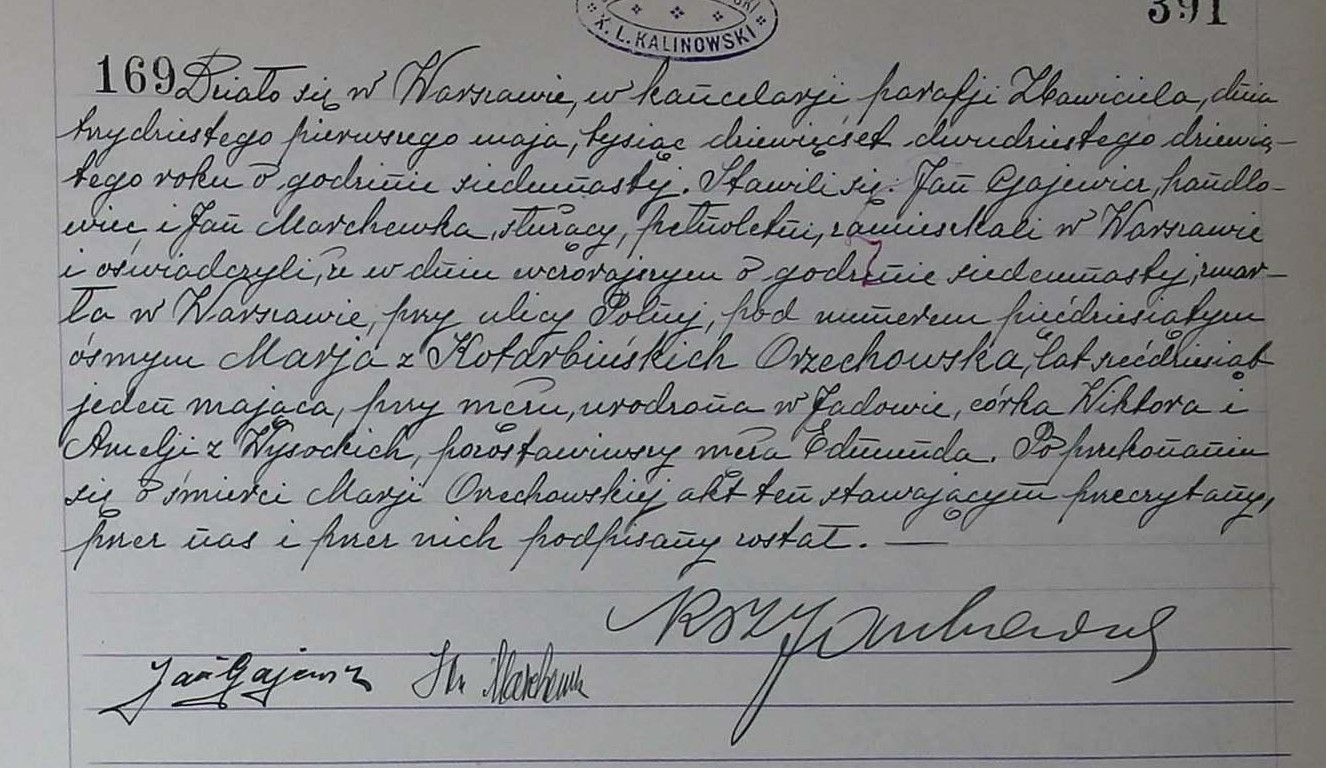 391
SKI
K. L. KALINOWSKI
169 Działo się w Warszawie, w kancelarji parafji Zbawiciela, dnia
trzydziestego pierwszego maja, tysiąc dziewięćset dwudziestego dziewią-
tego roku o godzinie siedemnastej. Stawili się: Jan Gajewicz, handlo-
wiec, i Jan Marchewka, służący, pełnoletni, zamieszkali w Warszawie
i oświadczyli, że w dniu wczorajszym o godzinie siedemnastej, zmar-
ła w Warszawie, przy ulicy Polnej, pod numerem pięćdziesiątym
ósmym Marja z Kotarbińskich Orzechowska, lat sześćdziesiąt
jeden mająca, przy mężu, urodzona w Jadowie, córka Wiktora i
Amelji z Wysockich, pozostawiwszy męża Edmunda. Po przekonaniu
się o śmierci Marji Orzechowskiej akt ten stawającym przeczytany,
przez nas i przez nich podpisany został. —
Jan Gajewicz